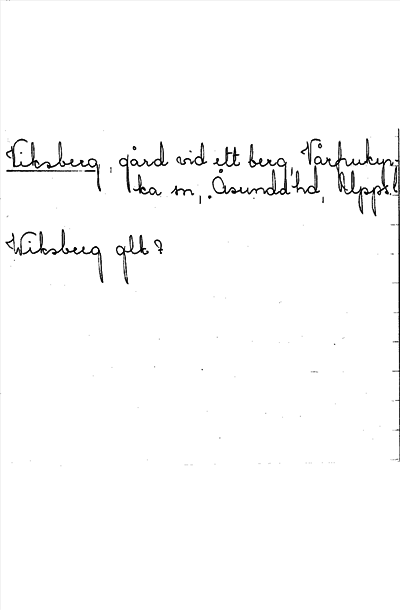 Viksberg, gård vid ett berg, Vårfrukyr-
ka sn, Åsunda hd, Upps.l
Wiksberg glt?